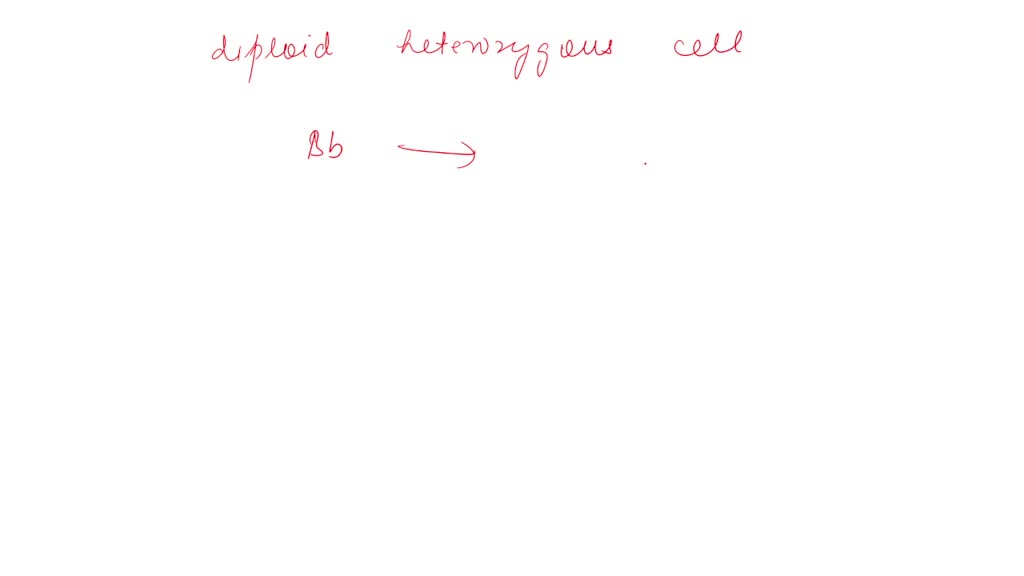 diploid heterozygous cell
Bb →